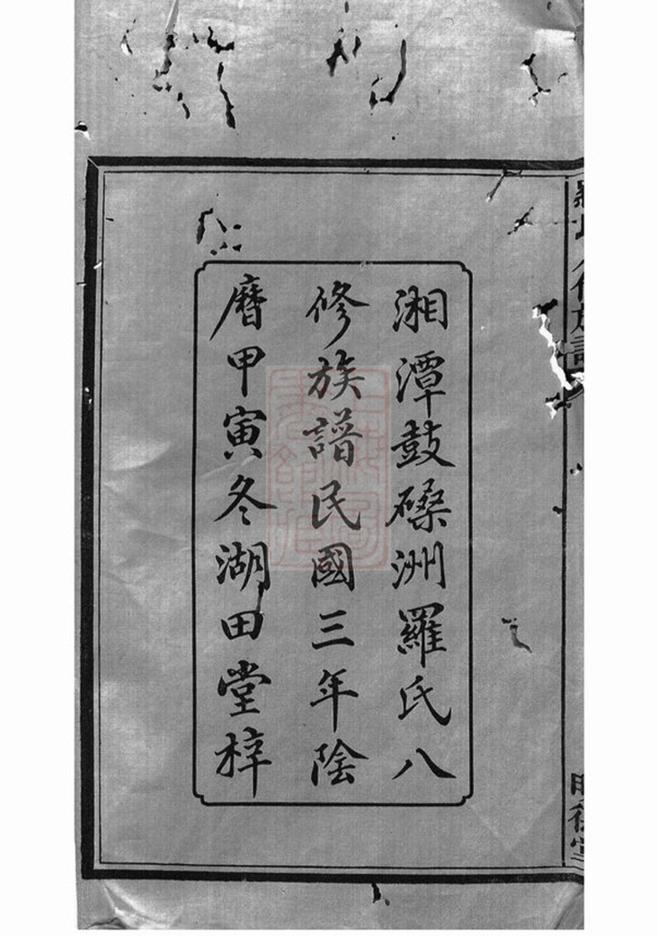 湘潭鼓磉洲羅氏八
修族譜民國三年陰
曆甲寅冬湖田堂梓